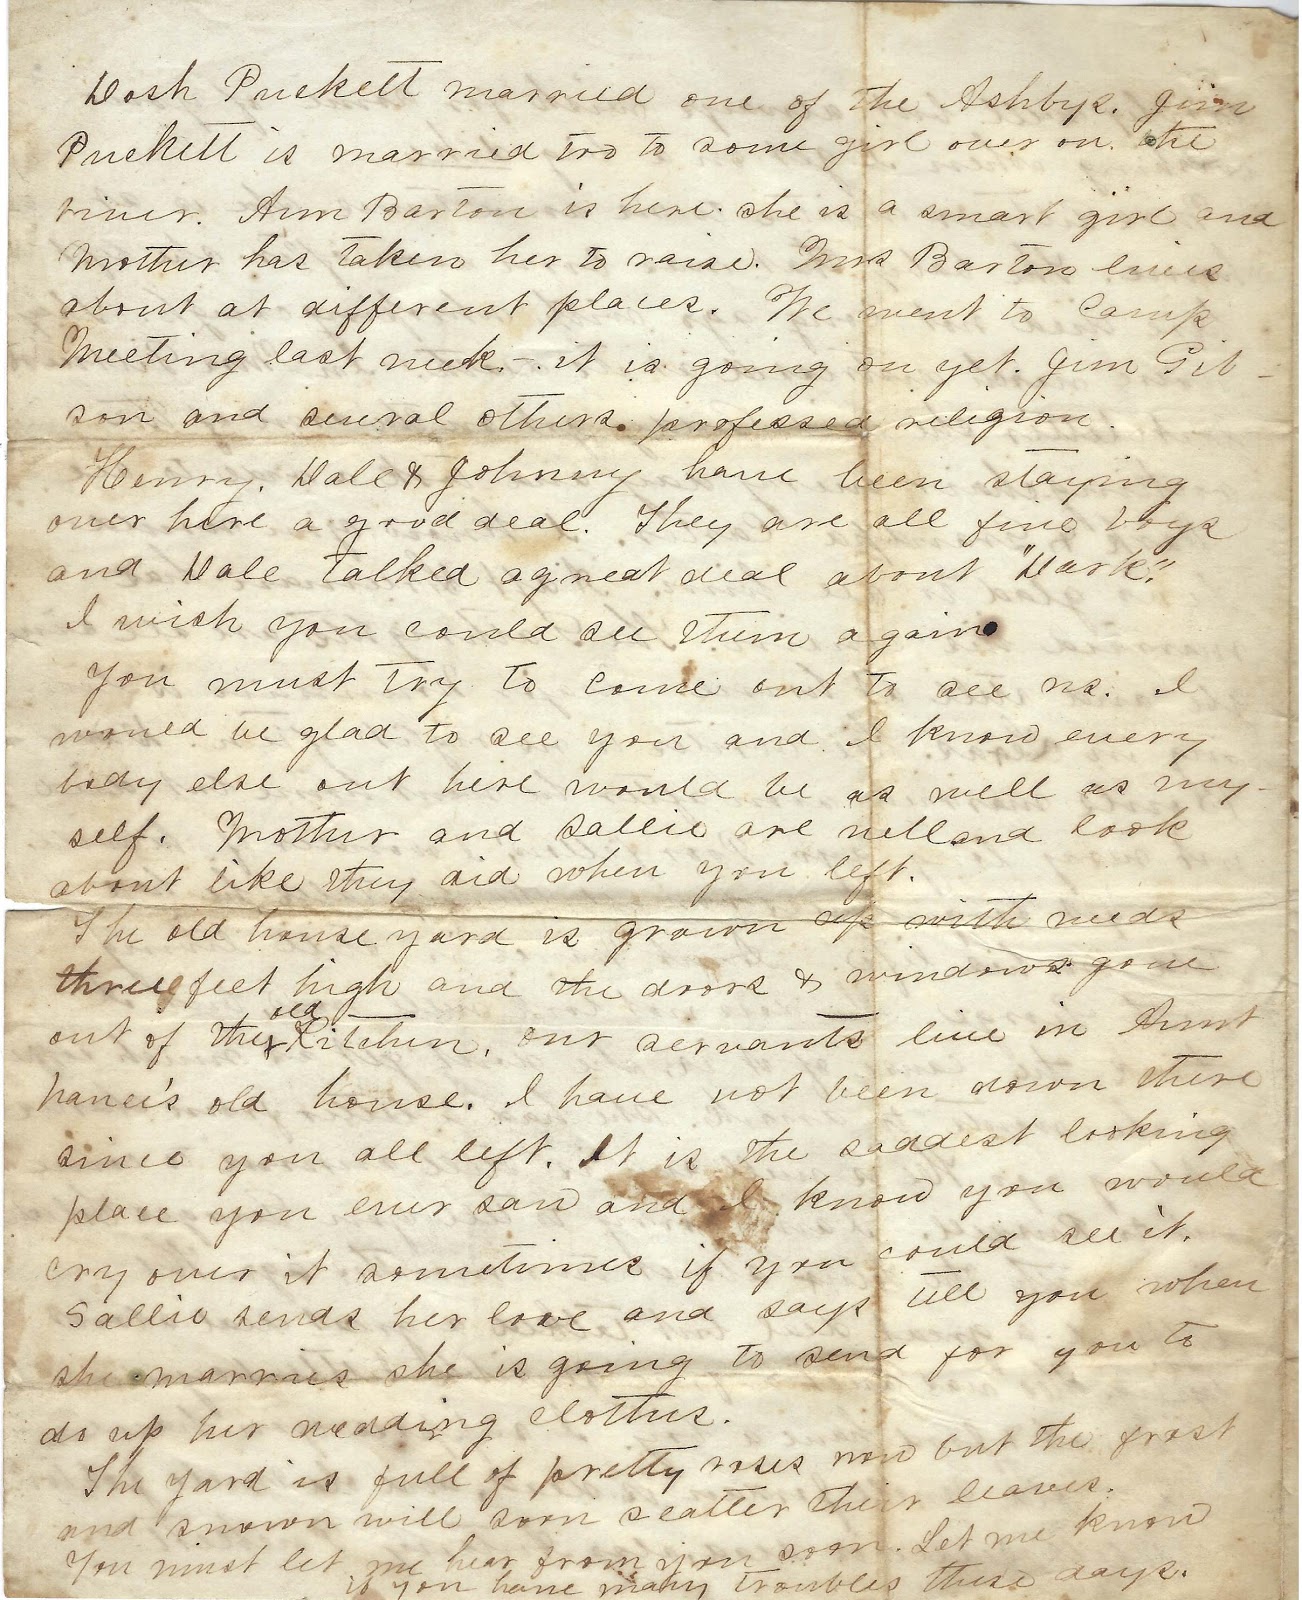 Dosh Puckett married one of the Ashbys. Jim
Puckett is married too to some girl over on the
river. Ann Barton is here. she is a smart girl and
Mother has taken her to raise. Mrs Barton lives
about at different places. We went to Camp
Meeting last week - it is going on yet. Jim Gib-
son and several others professed religion.
Henry, Dale & Johnny have been staying
over here a good deal. They are all fine boys
and Dale talked a great deal about "Dark".
I wish you could see them again.
You must try to come out to see us. I
would be glad to see you and I know every
body else out here would be as well as my-
self. Mother and Sallie are well and look
about like they did when you left.
The old house yard is grown up with weeds
three feet high and the doors & windows gone
out of the old Kitchen, our servants live in Aunt
old house. I have not been down there
since you all left. It is the saddest looking
place you ever saw and I know you would
cry over it sometimes if you could see it.
Sallie sends her love and says tell you when
she marries she is going to send for you to
do up her wedding clothes.
The yard is full of pretty roses now but the frost
and snown will soon scatter their leaves.
You must let me hear from you soon. Let me know
if you have many troubles these days.